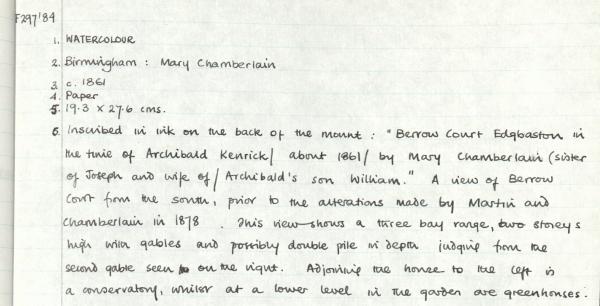 F297'84
1. WATERCOLOUR
2. Birmingham : Mary Chamberlain
3. c. 1861
4. Paper
5. 19.3 x 27.6 cms.
6. Inscribed in ink on the back of the mount : "Berrow Court Edgbaston in
the time of Archibald Kenrick/ about 1861/ by Mary Chamberlain (sister
of Joseph and wife of / Archibald's son William." A view of Berrow
Court from the south, prior to the alterations made by Martin and
Chamberlain in 1878. This view shows a three bay range, two storeys
high with gables and possibly double pile in depth judging from the
second gable seen on the right. Adjoining the house to the left is
a conservatory, whilst at a lower level in the garden are greenhouses.